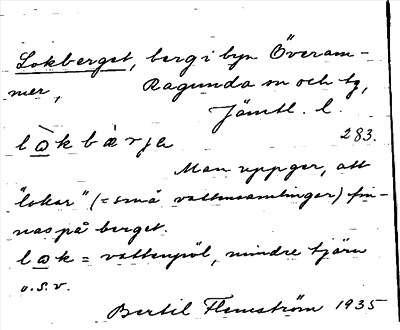 Lokberget, berg i byn Överam-
mer, Ragunda sn och tg,
Jämtl. l.
lo̲kbærja 283.
Man uppger, att
"lokar" (= små vattensamlingar) fin-
nas på berget.
lo̲k = vattenpöl, mindre tjärn
o.s.v.
Bertil Flemström 1935